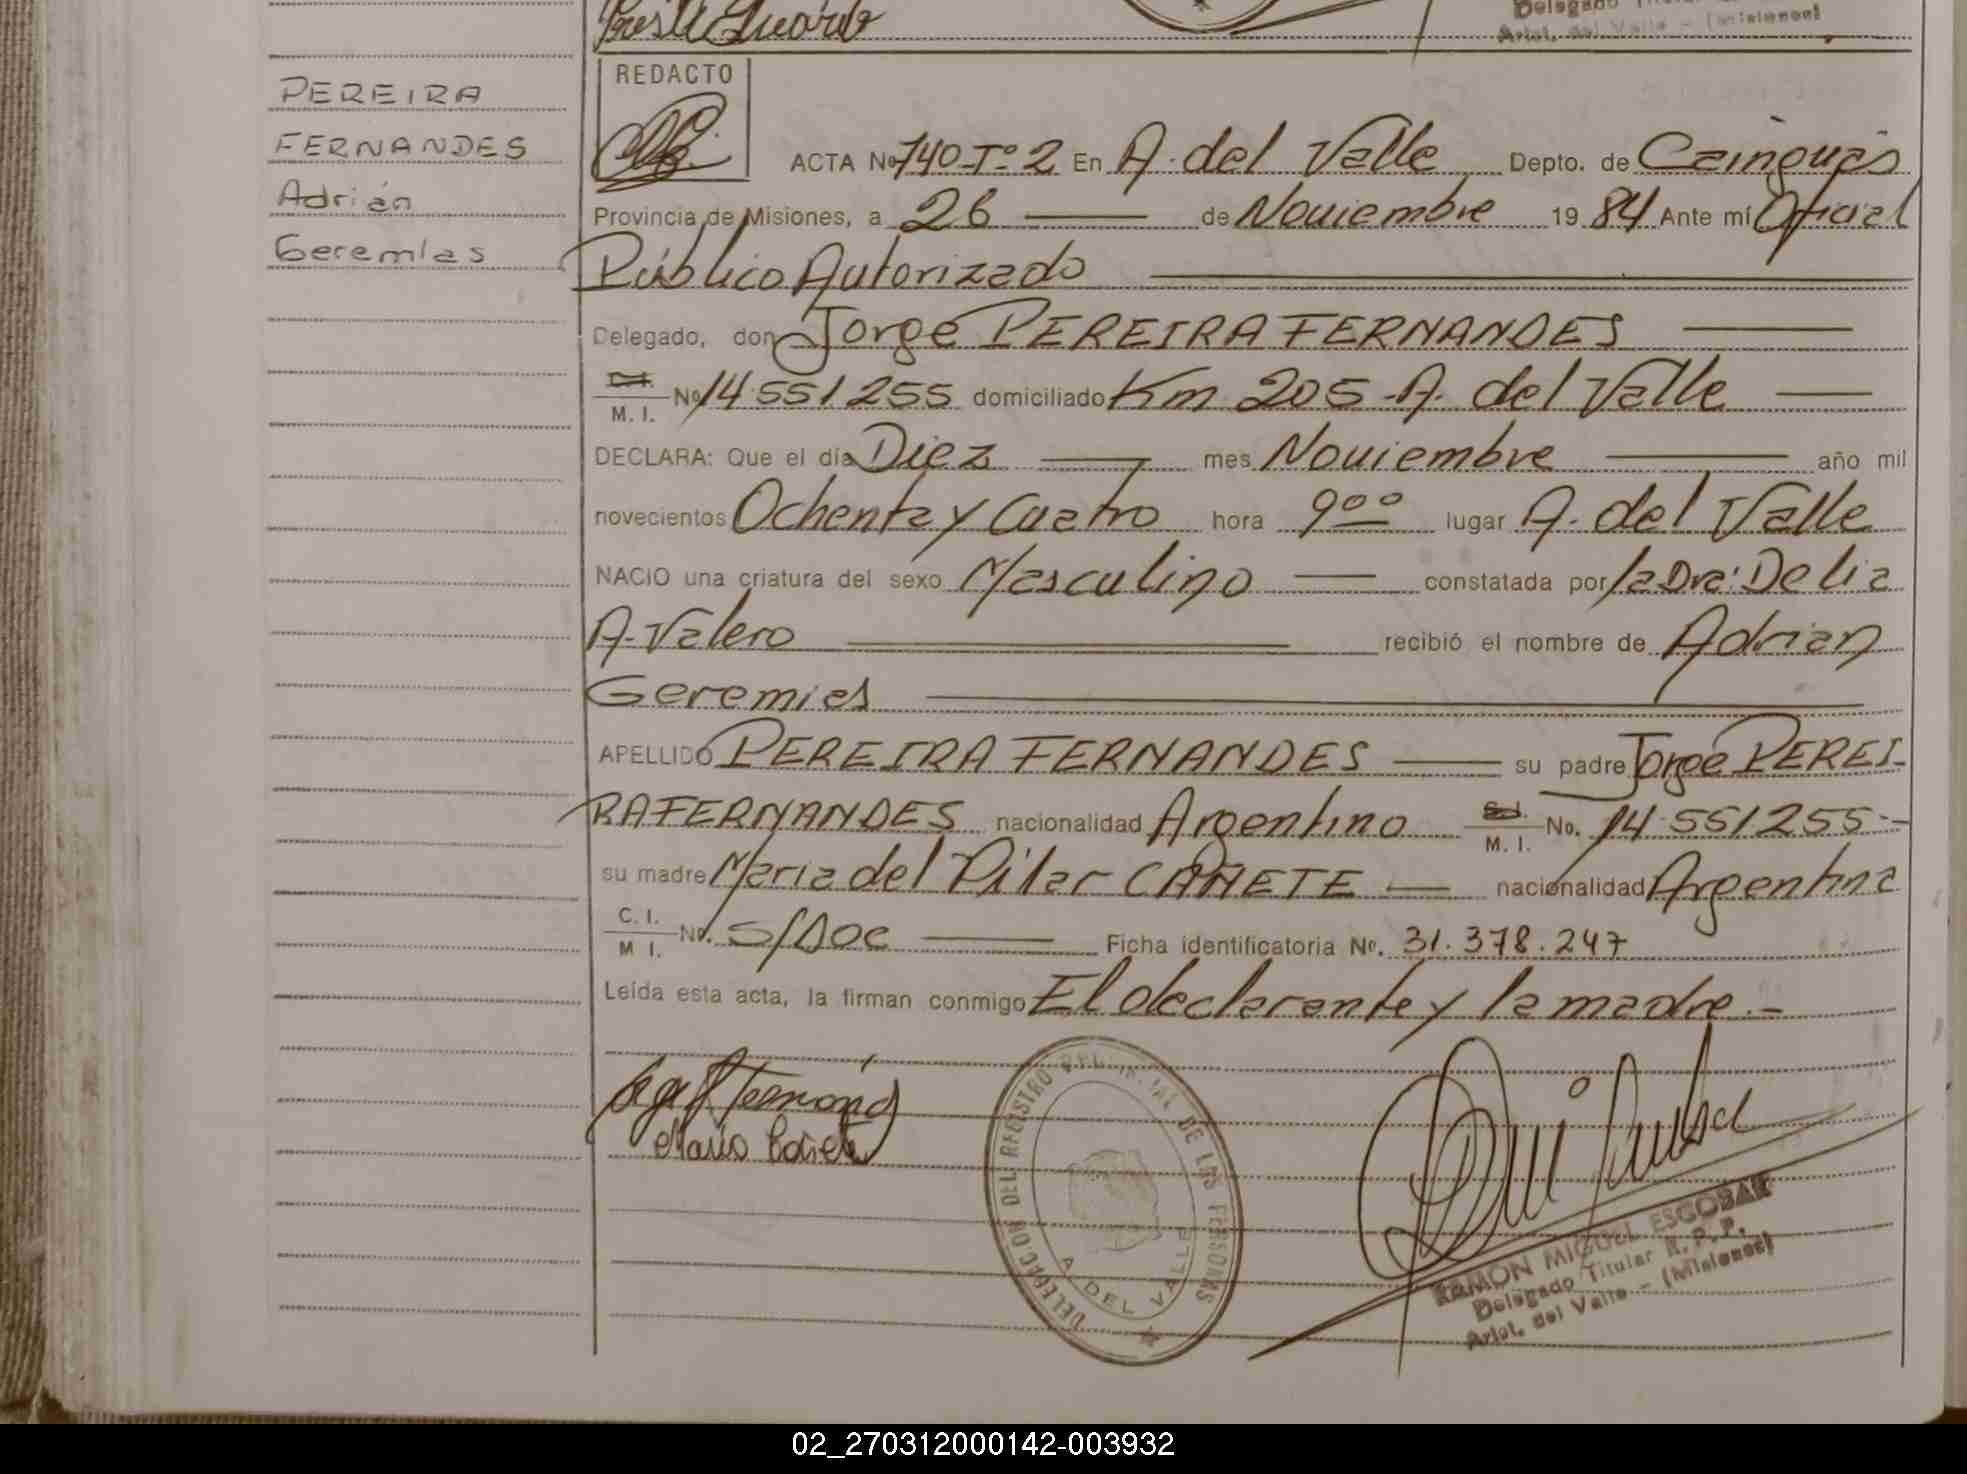 Delegado Titular
Arist. del Valle - (Misiones)
PEREIRA
FERNANDES
Adrián
Geremías
REDACTO
ACTA Nº 740-Tº-2 En A. del Valle Depto. de Cainguás
Provincia de Misiones, a 26 de Noviembre 19 84 Ante mí Oficial
Público Autorizado
Delegado, don Jorge PEREIRA FERNANDES
M. I. Nº 14.551255 domiciliado Km 205-A. del Valle
DECLARA: Que el día Diez mes Noviembre año mil
novecientos Ochenta y Cuatro hora 9ºº lugar A. del Valle
NACIO una criatura del sexo Masculino constatada por la Dra: Delia
A. Valero recibió el nombre de Adrian
Geremias
APELLIDO PEREIRA FERNANDES su padre Jorge PEREI-
RA FERNANDES nacionalidad Argentino M. I. No. 14.551255-
su madre Maria del Pilar CAÑETE nacionalidad Argentina
C. I.
M I. Nº. S/Doc Ficha identificatoria Nº. 31.378.247
Leída esta acta, la firman conmigo El declarante y la madre.-
DELEGACION DEL REGISTRO PCIAL DE LAS PERSONAS
A DEL VALLE
RAMON MIGUEL ESCOBAR
Delegado Titular R. P. P.
Arist. del Valle - (Misiones)
02_270312000142-003932